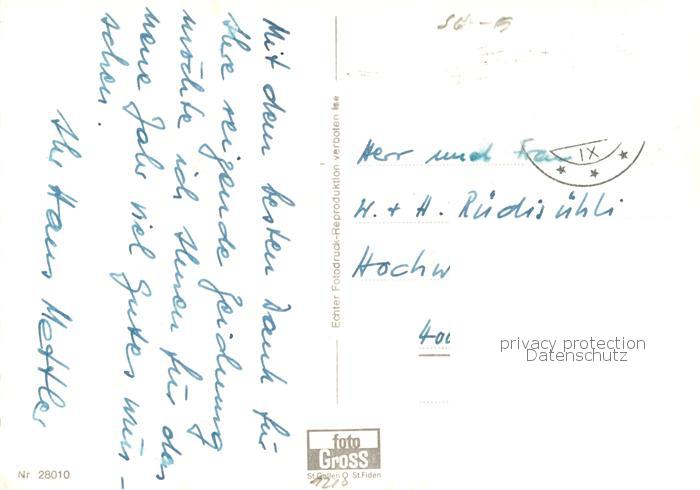 Mit dem besten Dank für
Ihre reizende Zeichnung
möchte ich Ihnen für das
neue Jahr viel Gutes wün-
schen.
Ihr Hans Mettler
Echter Fotodruck-Reproduktion verboten
Herr und Frau
W. + H. Rüdisühli
Hochw
400
IX
privacy protection
Datenschutz
foto
Gross
St.Gallen O St.Fiden
Nr. 28010